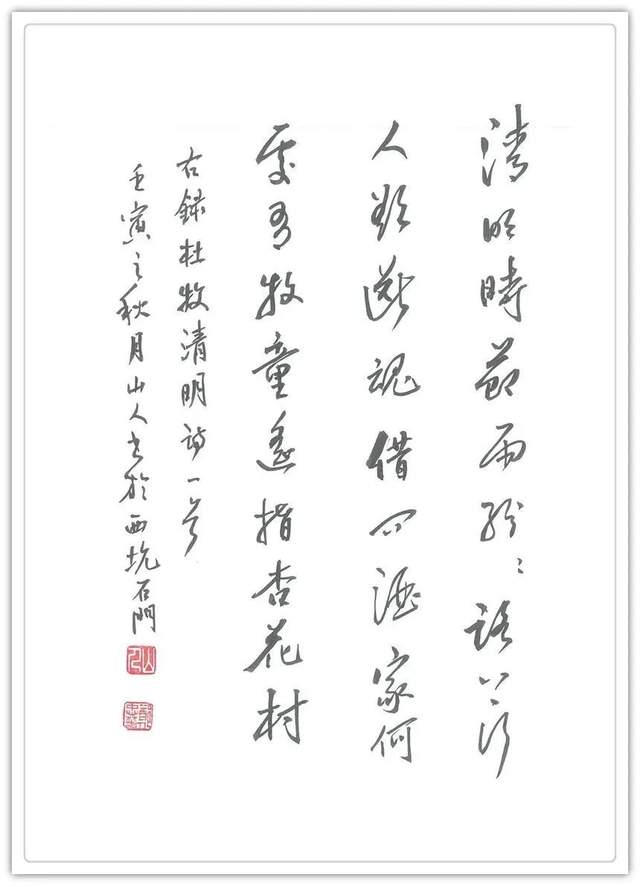 清明時節雨紛〻路上行
人欲斷魂借问酒家何
处有牧童遥指杏花村
右録杜牧清明诗一首
壬寅之秋月山人书於西坑石門
山人